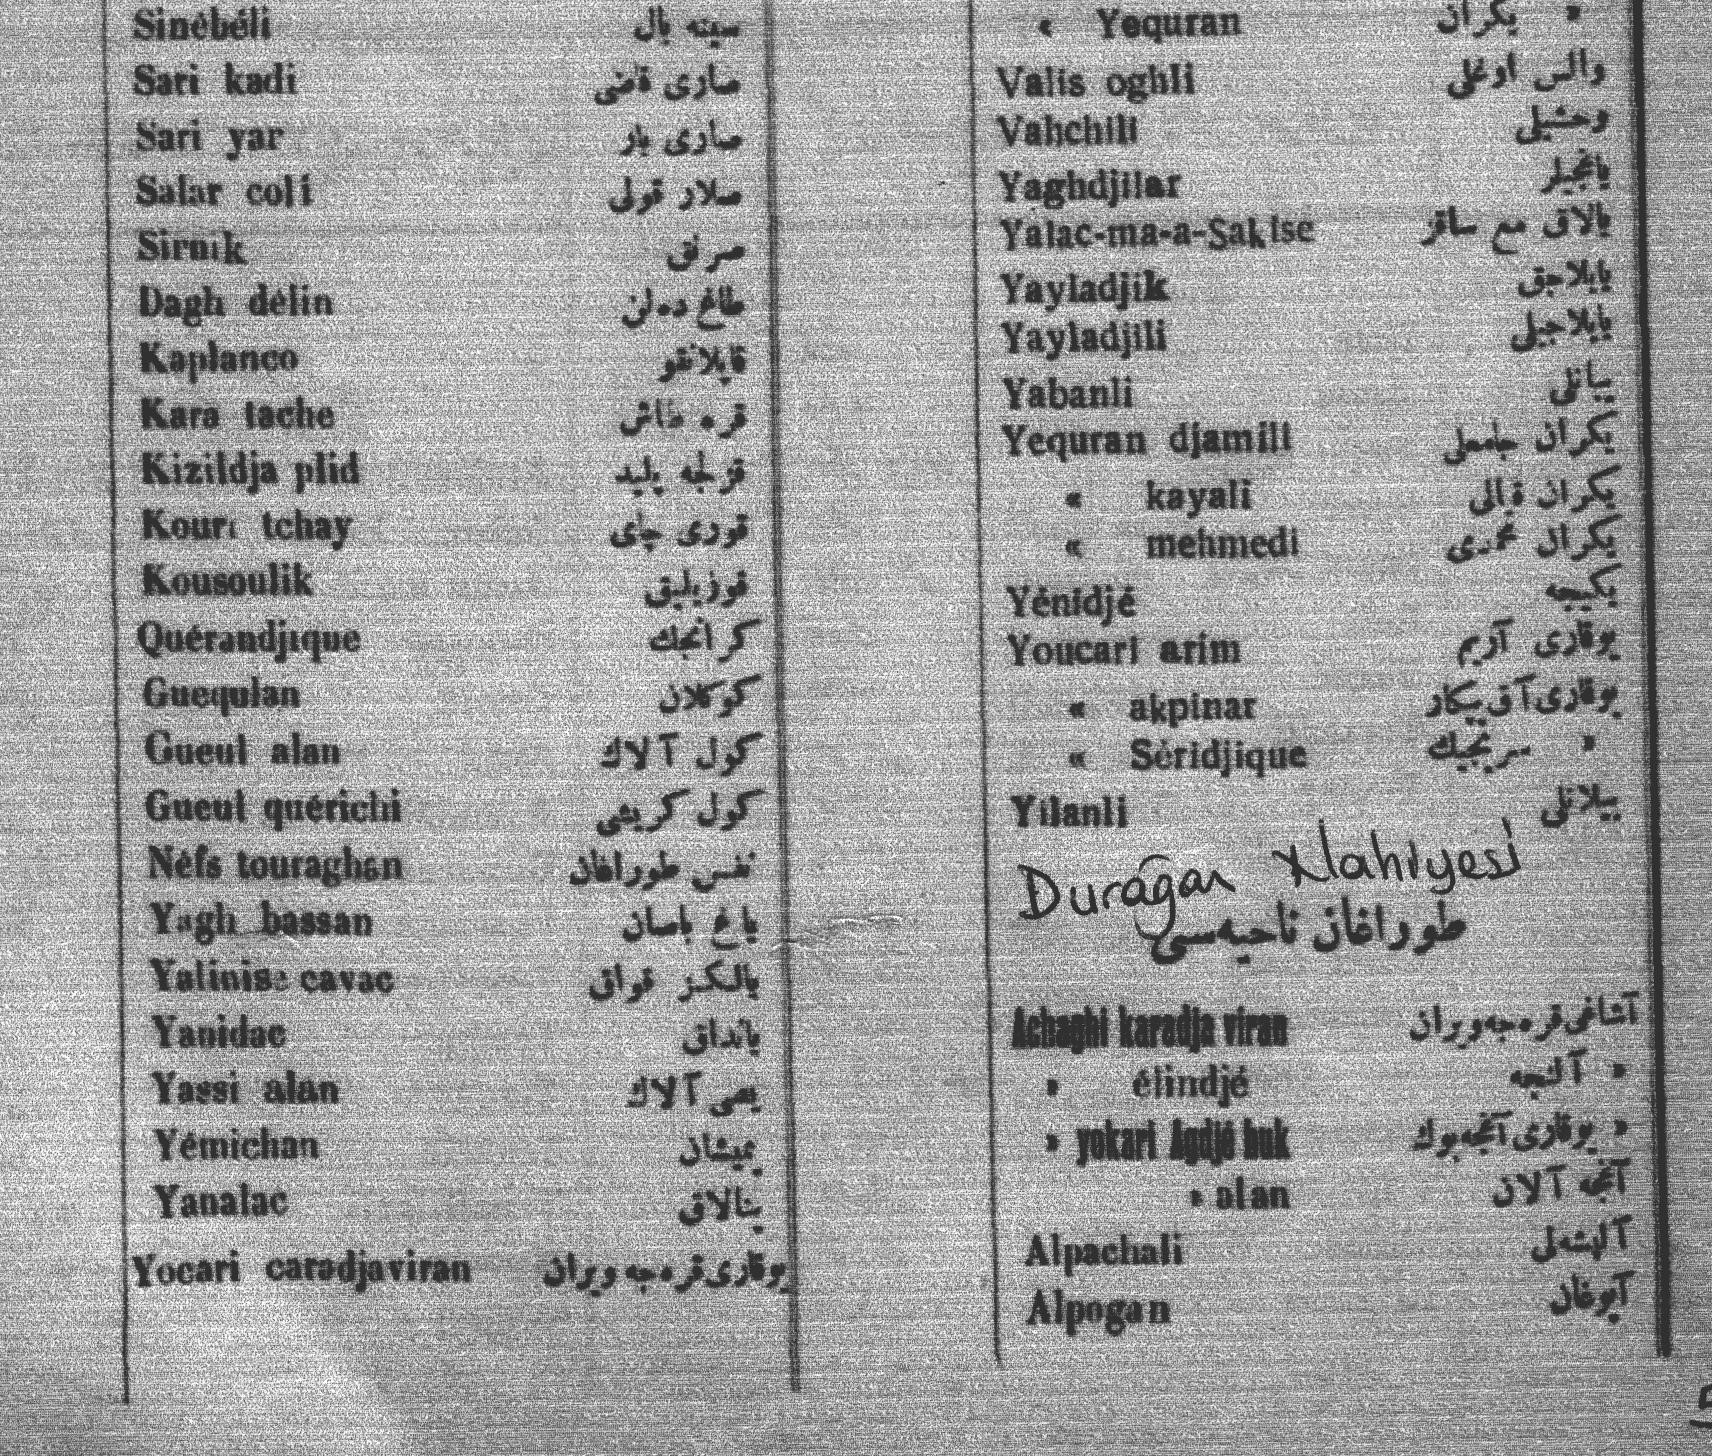 Sinébéli سینه بال
Sari kadi صاری قاضی
Sari yar صاری یار
Salar coli صلار قولی
Sirnik صرنق
Dagh délin طاغ ده لن
Kaplanco قاپلانقو
Kara tache قره طاش
Kizildja plid قزلجه پلید
Kouri tchay قوری چای
Kousoulik قوزیلیق
Quérandjique کرانجك
Guequlan کوکلان
Gueul alan کول آلاك
Gueul quérichi کول کریشی
Néfs touraghan نفس طوراغان
Yagh bassan یاغ باصان
Yalinise cavac یالکز قواق
Yanidac یانداق
Yassi alan یصی آلاك
Yémichan یمیشان
Yanalac ینالاق
Yocari caradjaviran یوقاری قره جه ویران
« Yequran یکران »
Valis oghli والس اوغلی
Vahchili وحشیلی
Yaghdjilar یاغجیلر
Yalac-ma-a-Sakise یالاق مع ساقز
Yayladjik یایلاجق
Yayladjili یایلاجیلی
Yabanli یبانلی
Yequran djamili یکران جامعلی
« kayali یکران قیالی
« mehmedi یکران محمدی
Yénidjé یکیجه
Youcari arim یوقاری آریم
« akpinar یوقاری آق پیکار
« Séridjique سرنجیك »
Yilanli ییلانلی
Duragan Nahiyesi
طوراغان ناحیه سی
Achaghi karadja viran آشاغی قره جه ویران
» élindjé آلنجه »
» yokari Agdjé buk یوقاری آقجه بوك »
» alan آقجه آلان
Alpachali آلپشه لی
Alpogan آلپوغان